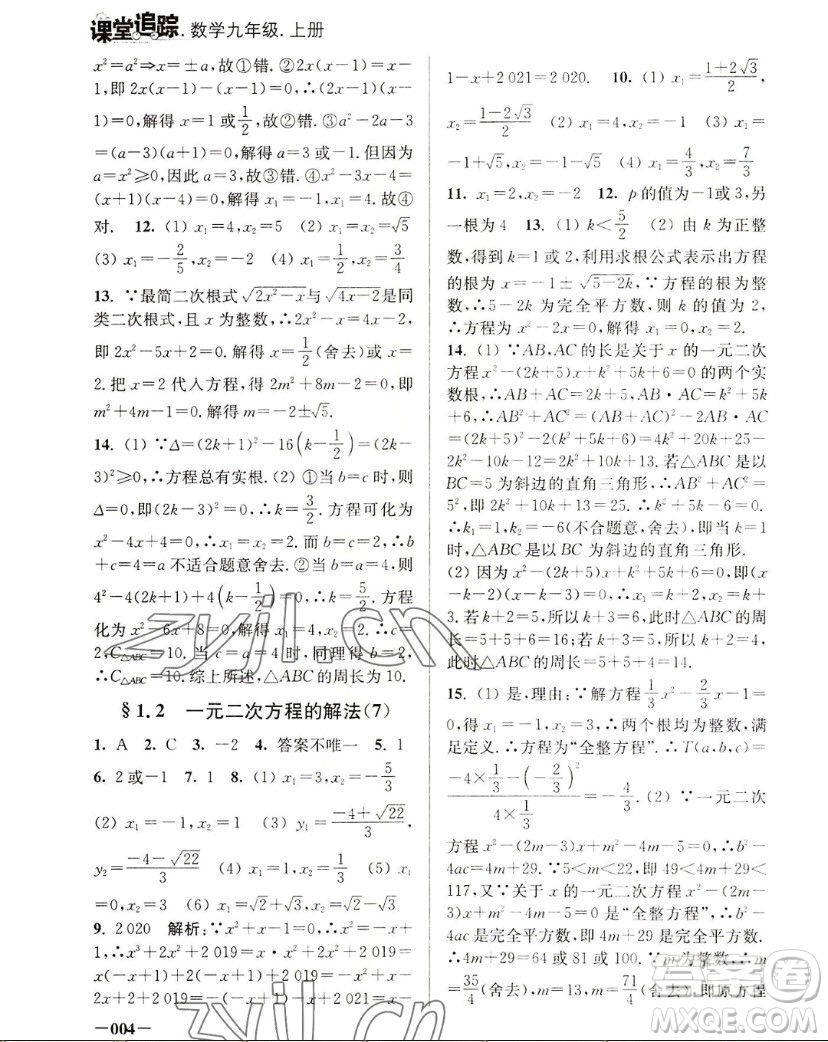 课堂追踪.数学九年级.上册
x²=a²⇒x=±a,故①错.②2x(x-1)=x-
1,即2x(x-1)-(x-1)=0,∴(2x-1)(x-
1)=0,解得x=1或1/2,故②错.③a²-2a-3
=(a-3)(a+1)=0,解得a=3或-1.但因为
a=x²≥0,因此a=3,故③错.④x²-2x-3=
(x+1)(x-3)=0,解得x₁=-1,x₂=3,故④
对. 12. (1) x₁=4,x₂=5 (2) x₁=x₂=√5
(3) x₁=-2/5,x₂=1 (4) x₁=1/2,x₂=3/4
13. ∵最简二次根式√(2x²-x)与√(4x-2)是同
类二次根式,且x为整数,∴2x²-x=4x-2,
即2x²-5x+2=0,解得x=1/2(舍去)或x=
2.把x=2代入方程,得2m²+8m-2=0,即
m²+4m-1=0.解得m=-2±√5.
14. (1) ∵Δ=(2k+1)²-16(k-1/2)=(2k-
3)²≥0,∴方程总有实根.(2) ①当b=c时,则
Δ=0,即(2k-3)²=0,∴k=3/2.方程可化为
x²-4x+4=0,∴x₁=x₂=2.而b=c=2,∴b
+c=4=a不适合题意舍去.②当b=a=4,则
4²-4(2k+1)+4(k-1/2)=0,∴k=5/2.方程
化为x²-6x+8=0,解得x₁=4,x₂=2,∴c=
2,∴C△ABC=10.当c=a=4时,同理得b=2,
∴C△ABC=10.综上所述,△ABC的周长为10.
§1.2 一元二次方程的解法(7)
1. A 2. C 3. -2 4. 答案不唯一 5. 1
6. 2或-1 7. 1 8. (1) x₁=3,x₂=-5/3
(2) x₁=-1,x₂=1 (3) y₁=(-4+√22)/3,
y₂=(-4-√22)/3 (4) x₁=1,x₂=1/3 (5) x₁
=0,x₂=3 (6) x₁=√2+√3,x₂=√2-√3
9. 2 020 解析:∵x²+x-1=0,∴x²=-x+
1,∴x³+2x²+2 019=x·x²+2x²+2 019=
x(-x+1)+2(-x+1)+2 019=-x²+x-2x
+2+2 019=-x²-x+2 021=-(-x+1)-
—004—
1-x+2 021=2 020. 10. (1) x₁=(1+2√3)/2,
x₂=(1-2√3)/2 (2) x₁=4,x₂=-1 (3) x₁=
-1+√5,x₂=-1-√5 (4) x₁=4/3,x₂=7/3
11. x₁=2,x₂=-2 12. p的值为-1或3,另
一根为4 13. (1) k<5/2 (2) 由k为正整
数,得到k=1或2,利用求根公式表示出方程
的根为x=-1±√(5-2k),∵方程的根为整
数,∴5-2k为完全平方数,则k的值为2,
∴方程为x²+2x=0,解得x₁=0,x₂=-2.
14. (1) ∵AB,AC的长是关于x的一元二次
方程x²-(2k+5)x+k²+5k+6=0的两个实
数根,∴AB+AC=2k+5,AB·AC=k²+5k
+6,∴AB²+AC²=(AB+AC)²-2AB·AC
=(2k+5)²-2(k²+5k+6)=4k²+20k+25-
2k²-10k-12=2k²+10k+13.若△ABC是以
BC=5为斜边的直角三角形,∴AB²+AC²=
5²,即2k²+10k+13=25.∴k²+5k-6=0.
∴k₁=1,k₂=-6(不合题意,舍去),即当k=1
时,△ABC是以BC为斜边的直角三角形.
(2) 因为x²-(2k+5)x+k²+5k+6=0,(x-
k-2)(x-k-3)=0,所以x₁=k+2,x₂=k+
3.若k+2=5,所以k+3=6,此时△ABC的周
长=5+5+6=16.若k+3=5,所以k+2=4,
此时△ABC的周长=5+5+4=14.
15. (1) 是,理由:∵解方程1/3x²-2/3x-1=
0,得x₁=-1,x₂=3,∴两个根均为整数,满
足定义.∴方程为“全整方程”.∴T(a,b,c)=
(-4×1/3-(-2/3)²)/(4×1/3)=-4/3.(2) ∵一元二次
方程x²-(2m-3)x+m²-4m-5=0,∴b²-
4ac=4m+29.∵5<m<22,即49<4m+29<
117,又∵关于x的一元二次方程x²-(2m-3)x
+m²-4m-5=0是“全整方程”,∴b²-
4ac是完全平方数,即4m+29是完全平方数.
∴4m+29=64或81或100,∵m为整数,∴m
=35/4(舍去),m=13,m=71/4(舍去),即原方程
zyjl.cn
zyjl.cn
答案圈